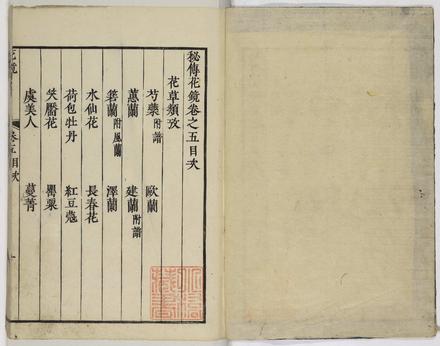 秘傳花鏡卷之五目次
花草類攷
芍藥附譜 歐蘭
蕙蘭 建蘭附譜
箬蘭附風蘭 澤蘭
水仙花 長春花
荷包牡丹 紅豆蔻
笑靨花 罌粟
虞美人 蔓菁
花鏡 卷五目次 一